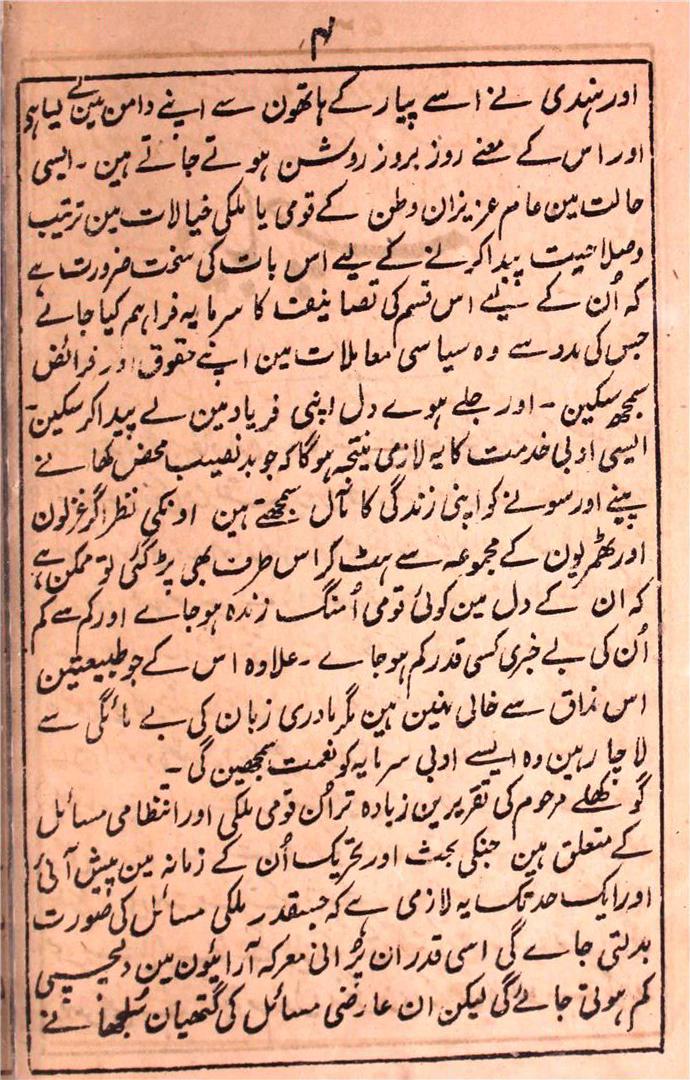 ۴
اور ہندی نے اسے پیار کے ہاتھون سے اپنے دامن مین لے لیا ہی
اور اس کے معنے روز بروز روشن ہوتے جاتے ہین ۔ ایسی
حالت مین عام عزیزان وطن کے قومی یا ملکی خیالات مین ترتیب
وصلاحیت پیدا کرنے کے لیے اس بات کی سخت ضرورت ہے
کہ اُن کے لیے اس قسم کی تصانیف کا سرمایہ فراہم کیا جائے
جس کی مدد سے وہ سیاسی معاملات مین اپنے حقوق اور فرائض
سمجھ سکین ۔ اور جلے ہوے دل اپنی فریاد مین لے پیدا کر سکین ۔
ایسی ادبی خدمت کا یہ لازمی نتیجہ ہوگا کہ جو بدنصیب محض کھانے
پینے اور سونے کو اپنی زندگی کا مآل سمجھتے ہین اونکی نظر اگر غزلون
اور ٹھمریون کے مجموعہ سے ہٹ کر اس طرف بھی پڑ گئی تو ممکن ہے
کہ ان کے دل مین کوئی قومی اُمنگ زندہ ہو جاے اور کم سے کم
اُن کی بے خبری کسی قدر کم ہو جاے ۔ علاوہ اس کے جو طبیعتین
اس مذاق سے خالی نہین ہین مگر مادری زبان کی بے مائگی سے
لاچار ہین وہ ایسے ادبی سرمایہ کو نعمت سمجھین گی ۔
گوکھلے مرحوم کی تقریرین زیادہ تر اُن قومی ملکی اور انتظامی مسائل
کے متعلق ہین جنکی بحث اور تحریک اُن کے زمانہ مین پیش آئی
اور ایک حد تک یہ لازمی ہے کہ جسقدر ملکی مسائل کی صورت
بدلتی جاے گی اسی قدر ان پُرانی معرکہ آرائیون مین دلچسپی
کم ہوتی جائے گی لیکن ان عارضی مسائل کی گتھیان سُلجھانے